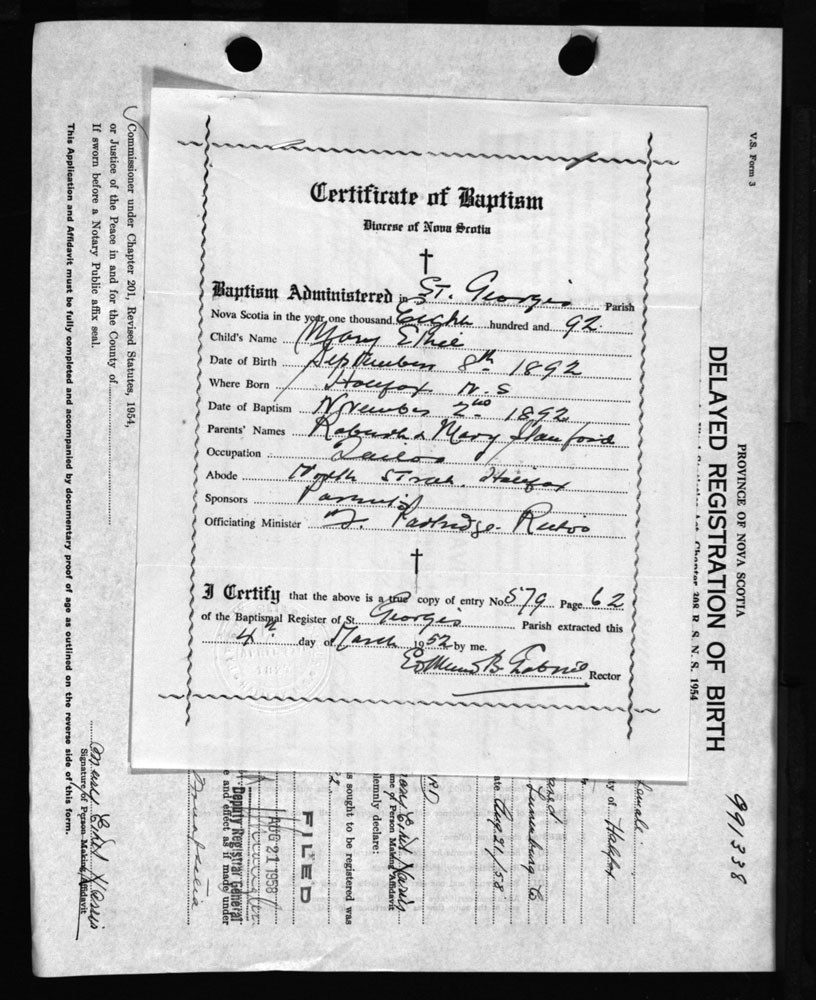 Certificate of Baptism
Diocese of Nova Scotia
Baptism Administered in St. George's Parish
Nova Scotia in the year one thousand Eight hundred and 92
Child's Name Mary Ethel
Date of Birth September 8th 1892
Where Born Halifax N.S
Date of Baptism November 2nd 1892
Parents' Names & Mary
Occupation
Abode North Street Halifax
Sponsors Parents
Officiating Minister F. Partridge - Rector
I Certify that the above is a true copy of entry No. 579 Page 62
of the Baptismal Register of St. Georges Parish extracted this
4th day of March 1952 by me.
Edmund B. Rector
V.S. Form 3
PROVINCE OF NOVA SCOTIA
DELAYED REGISTRATION OF BIRTH
Chapter 208 R. S. N. S. 1954
991338
Female
ty of Halifax
Lunenburg Co
ate Aug 21/58
RD
me of Person Making Affidavit
lemnly declare:
s sought to be registered was
2
FILED
AUG 21 1958
Deputy Registrar General
e and effect as if made under
Commissioner under Chapter 201, Revised Statutes, 1954,
or Justice of the Peace in and for the County of
If sworn before a Notary Public affix seal.
Signature of Person Making Affidavit
This Application and Affidavit must be fully completed and accompanied by documentary proof of age as outlined on the reverse side of this form.